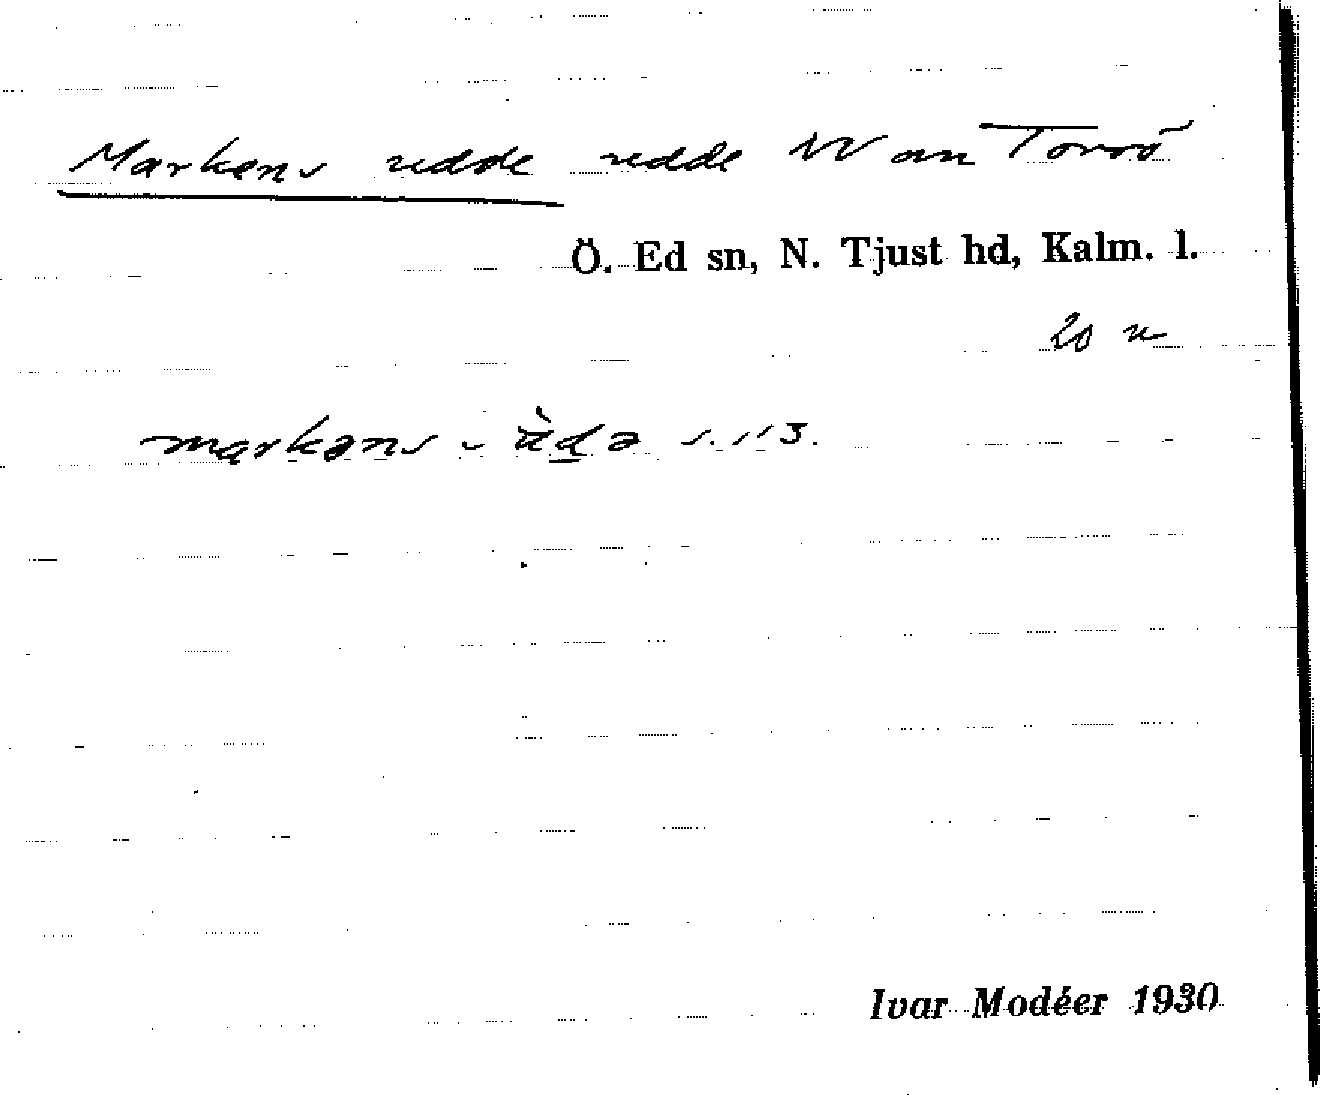 Markens udde udde W om Torrö
Ö. Ed sn, N. Tjust hd, Kalm. l.
20 u
markəns - ùdə s. 113.
Ivar Modéer 1930